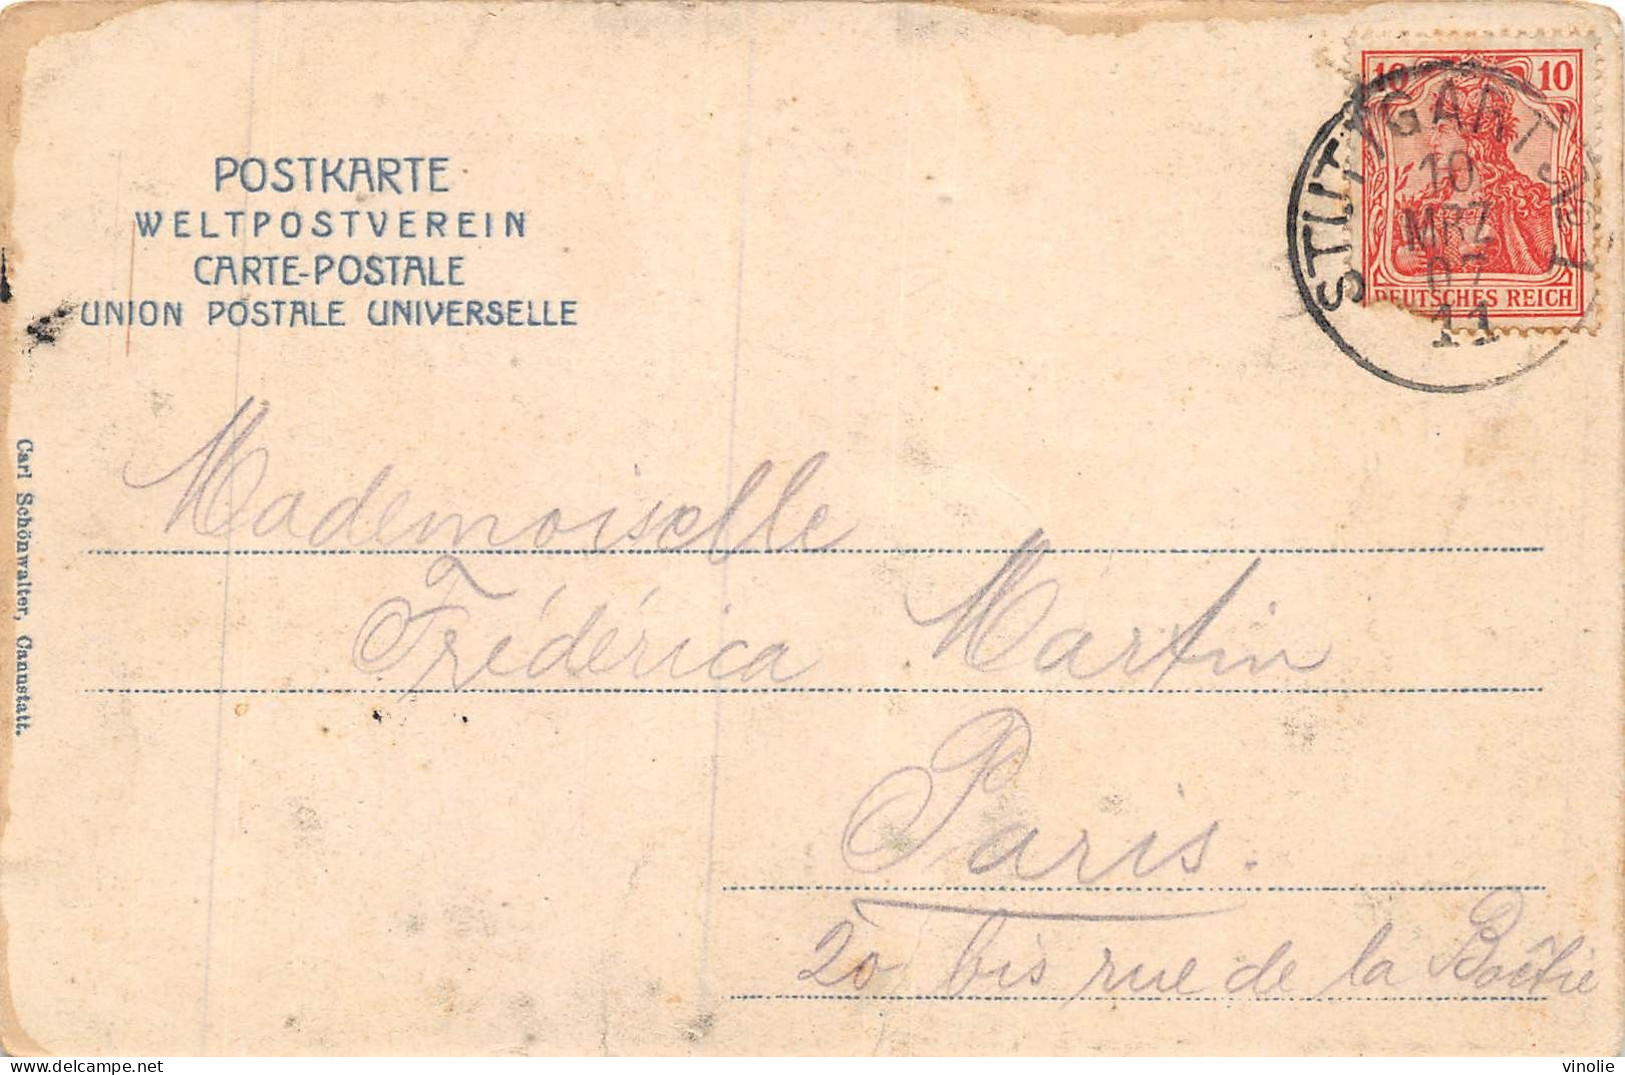 POSTKARTE
WELTPOSTVEREIN
CARTE-POSTALE
UNION POSTALE UNIVERSELLE
10 10
DEUTSCHES REICH
STUTTGART
10
MRZ
07
11
1
Carl Schönwalter, Cannstatt.
Mademoiselle
Frédérica Martin
Paris.
20 bis rue de la Boëtie
vinolie